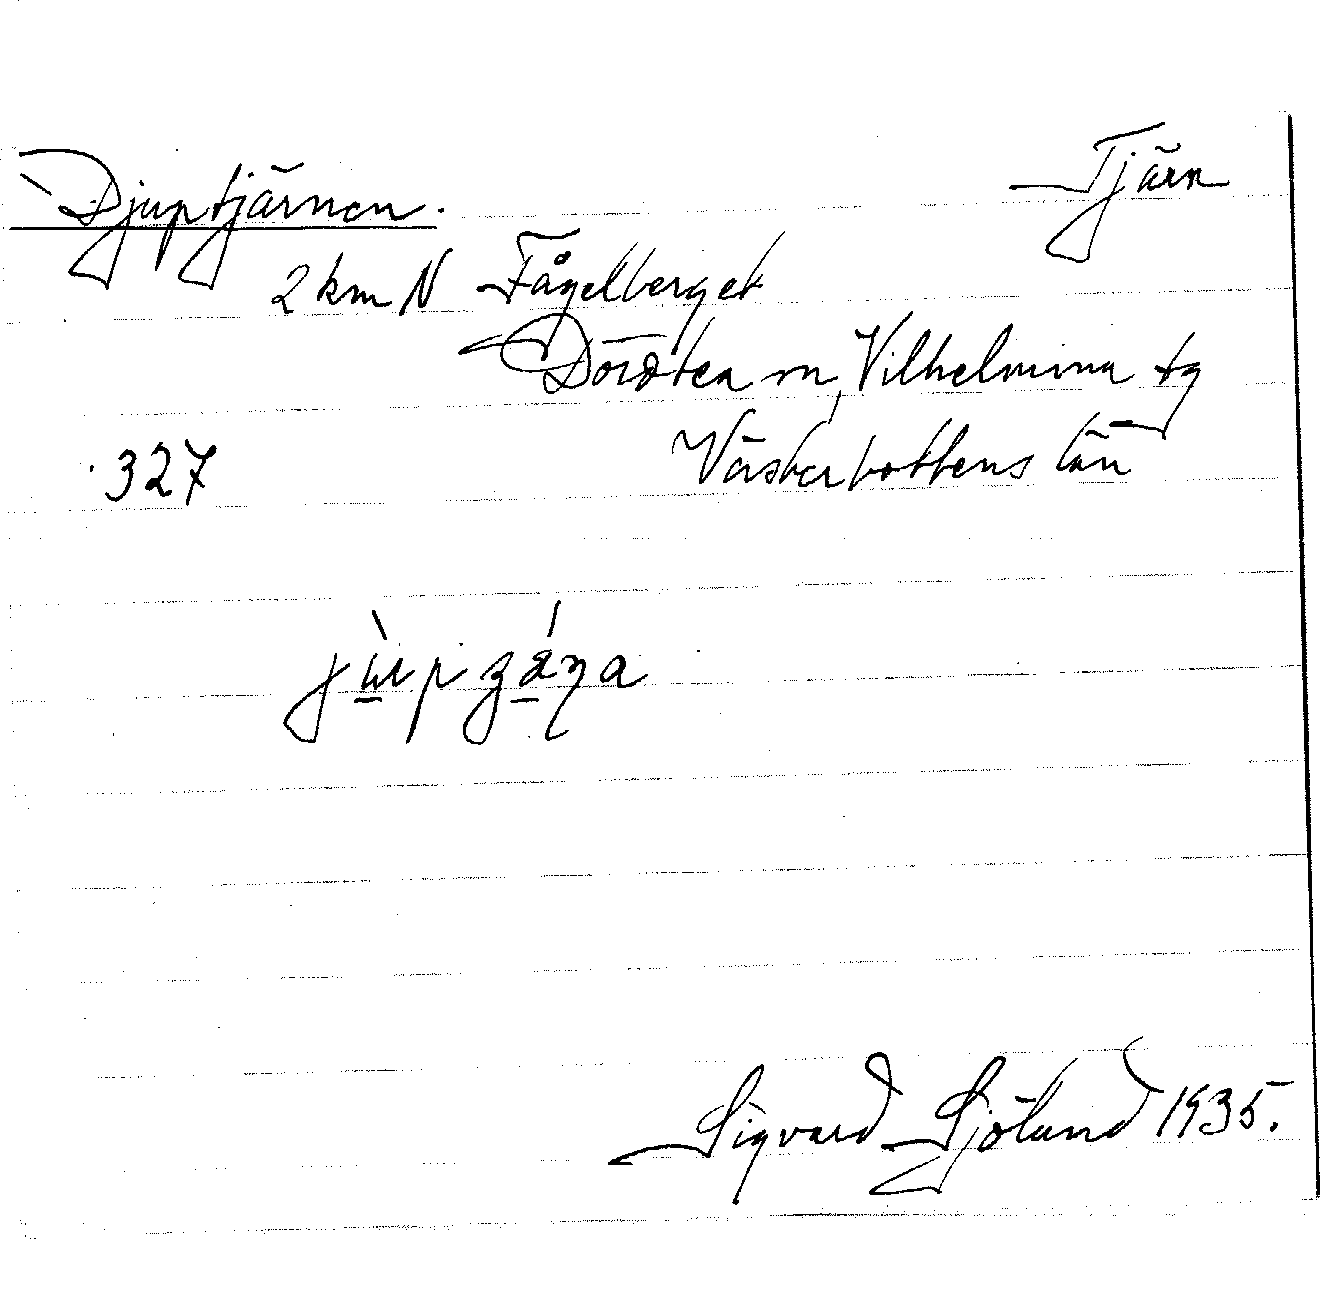 Djuptjärnen. Tjärn
2 km N Fågelberget
Dorotea m, Vilhelmina tg
327 Västerbottens län
Sigvard Sjölund 1935.